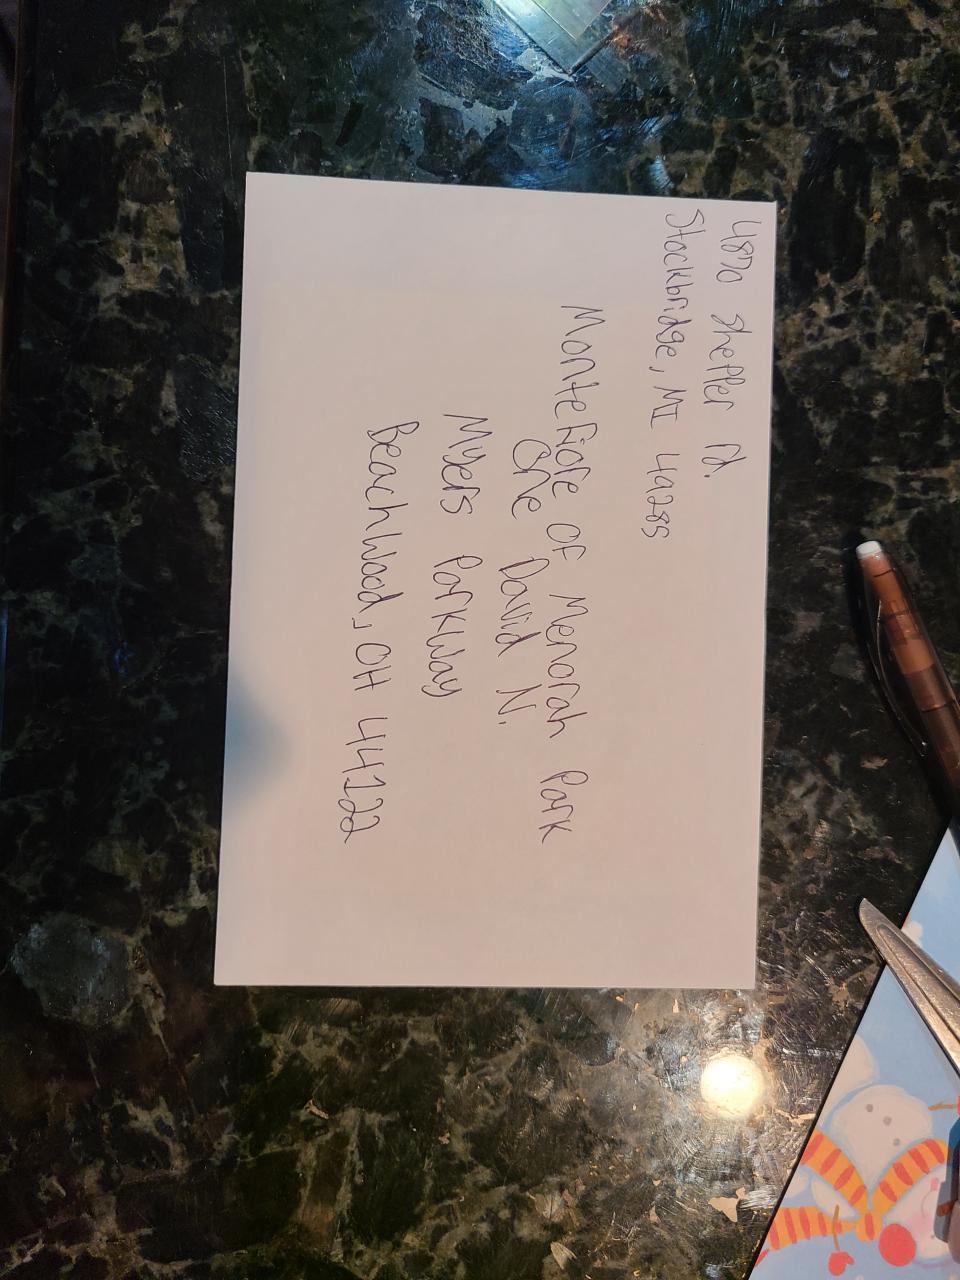 4870 Shepper rd.
Stockbridge, MI 49285
Montefiore OF Menorah Park
One David N.
Myers Parkway
Beachwood, OH 44122